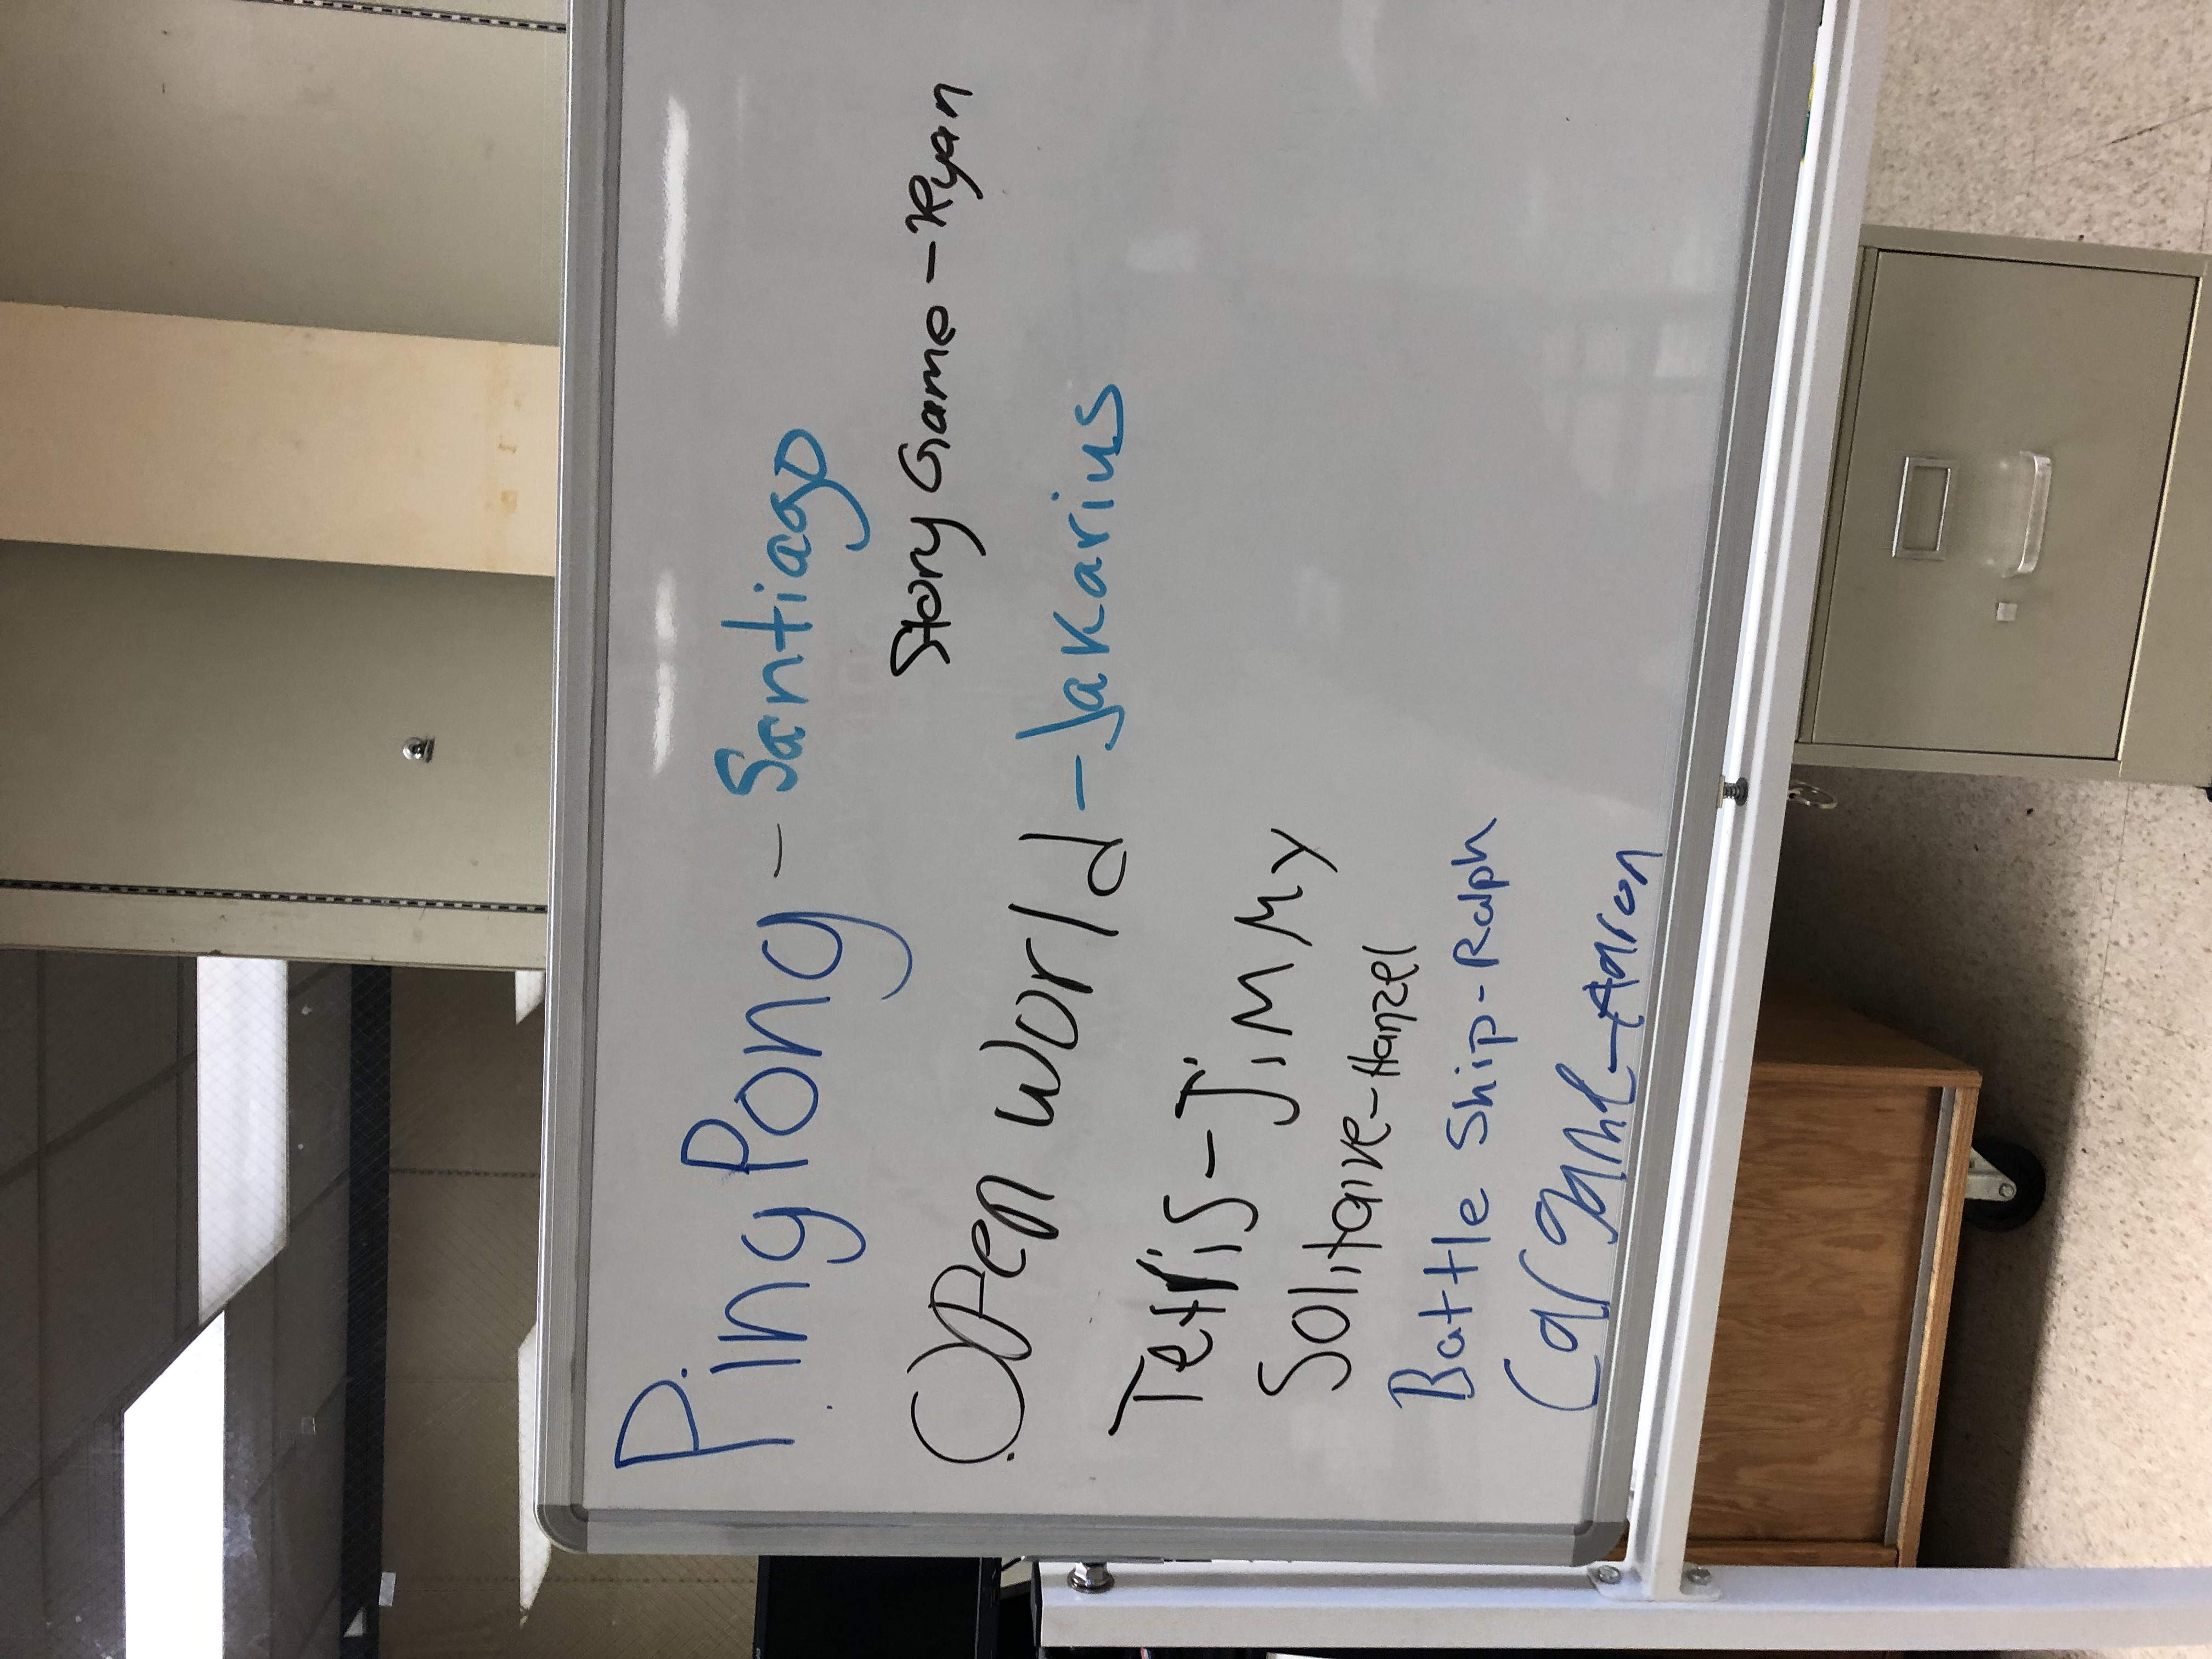 PingPong - Santiago
Story Game - Ryan
Open world - Jakarius
Tetris - Jimmy
Solitaire - Hanzel
Battle Ship - Ralph
Car game - Aaron